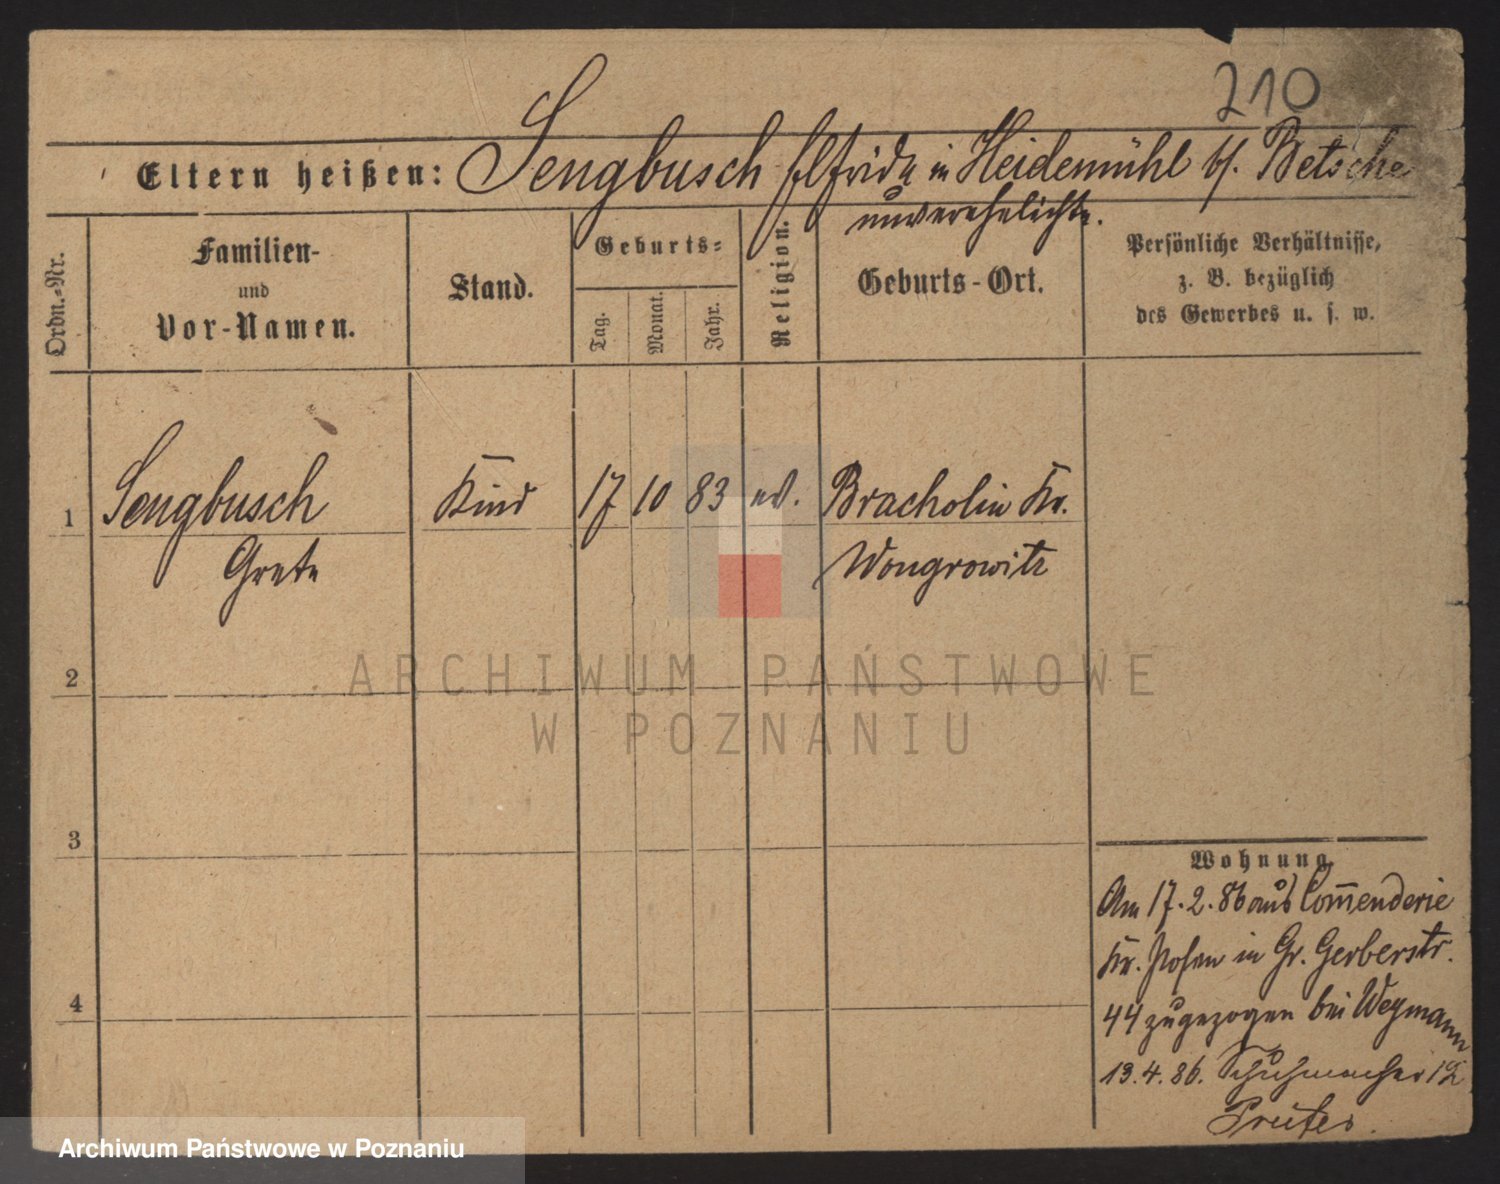 210
Eltern heißen: Sengbusch Elfride in Heidemühl b/. Betsche
unverehelichte.
Ordn.-Nr.
Familien-
und
Vor-Namen.
Stand.
Geburts-
Tag.
Monat.
Jahr.
Religion.
Geburts-Ort.
Persönliche Verhältnisse,
z. B. bezüglich
des Gewerbes u. s. w.
1 Sengbusch Kind 17 10 83 ev. Bracholin Kr.
Grete Wongrowitz
2
ARCHIWUM PAŃSTWOWE
W POZNANIU
3
Wohnung
Am 17.2.86 aus Com̅enderie
Kr. Posen in Gr. Gerberstr.
44 zugezogen bei Wegmann
4
13.4.86. Schuhmacher 12
Archiwum Państwowe w Poznaniu